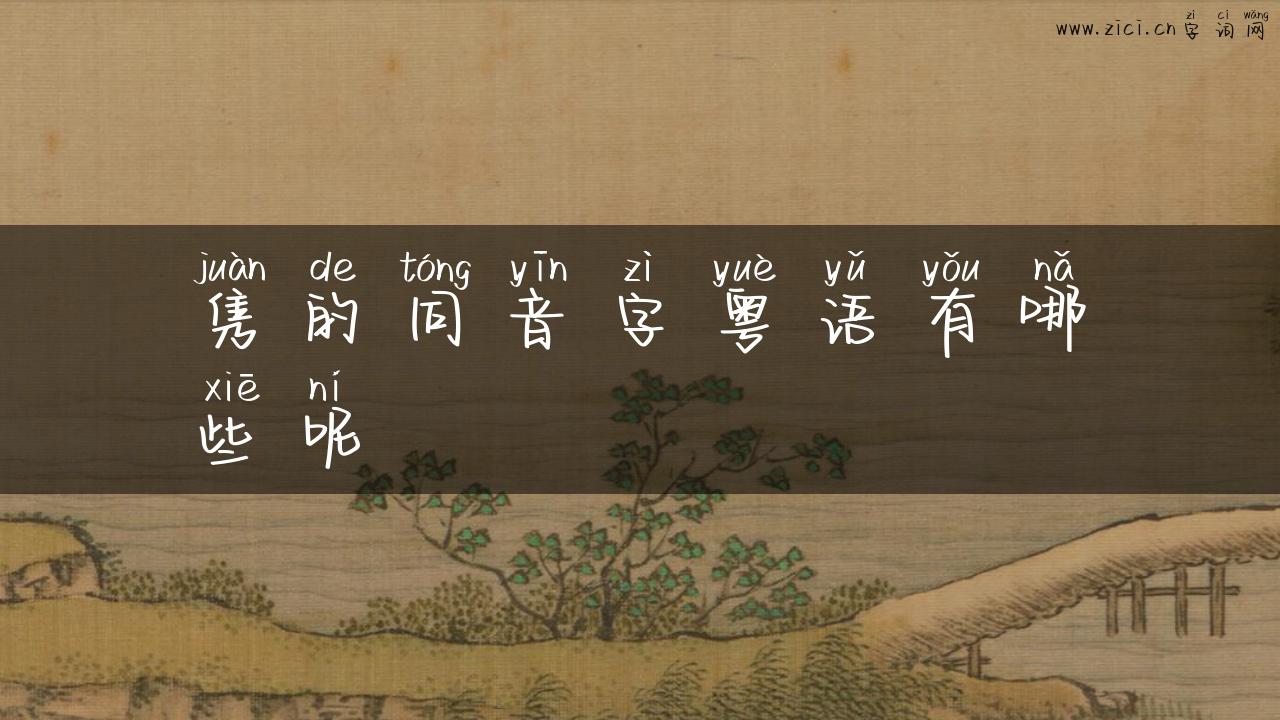 zì cí wǎng
www.zici.cn 字 词 网
juàn de tóng yīn zì yuè yǔ yǒu nǎ
隽 的 同 音 字 粤 语 有 哪
xiē ní
些 呢